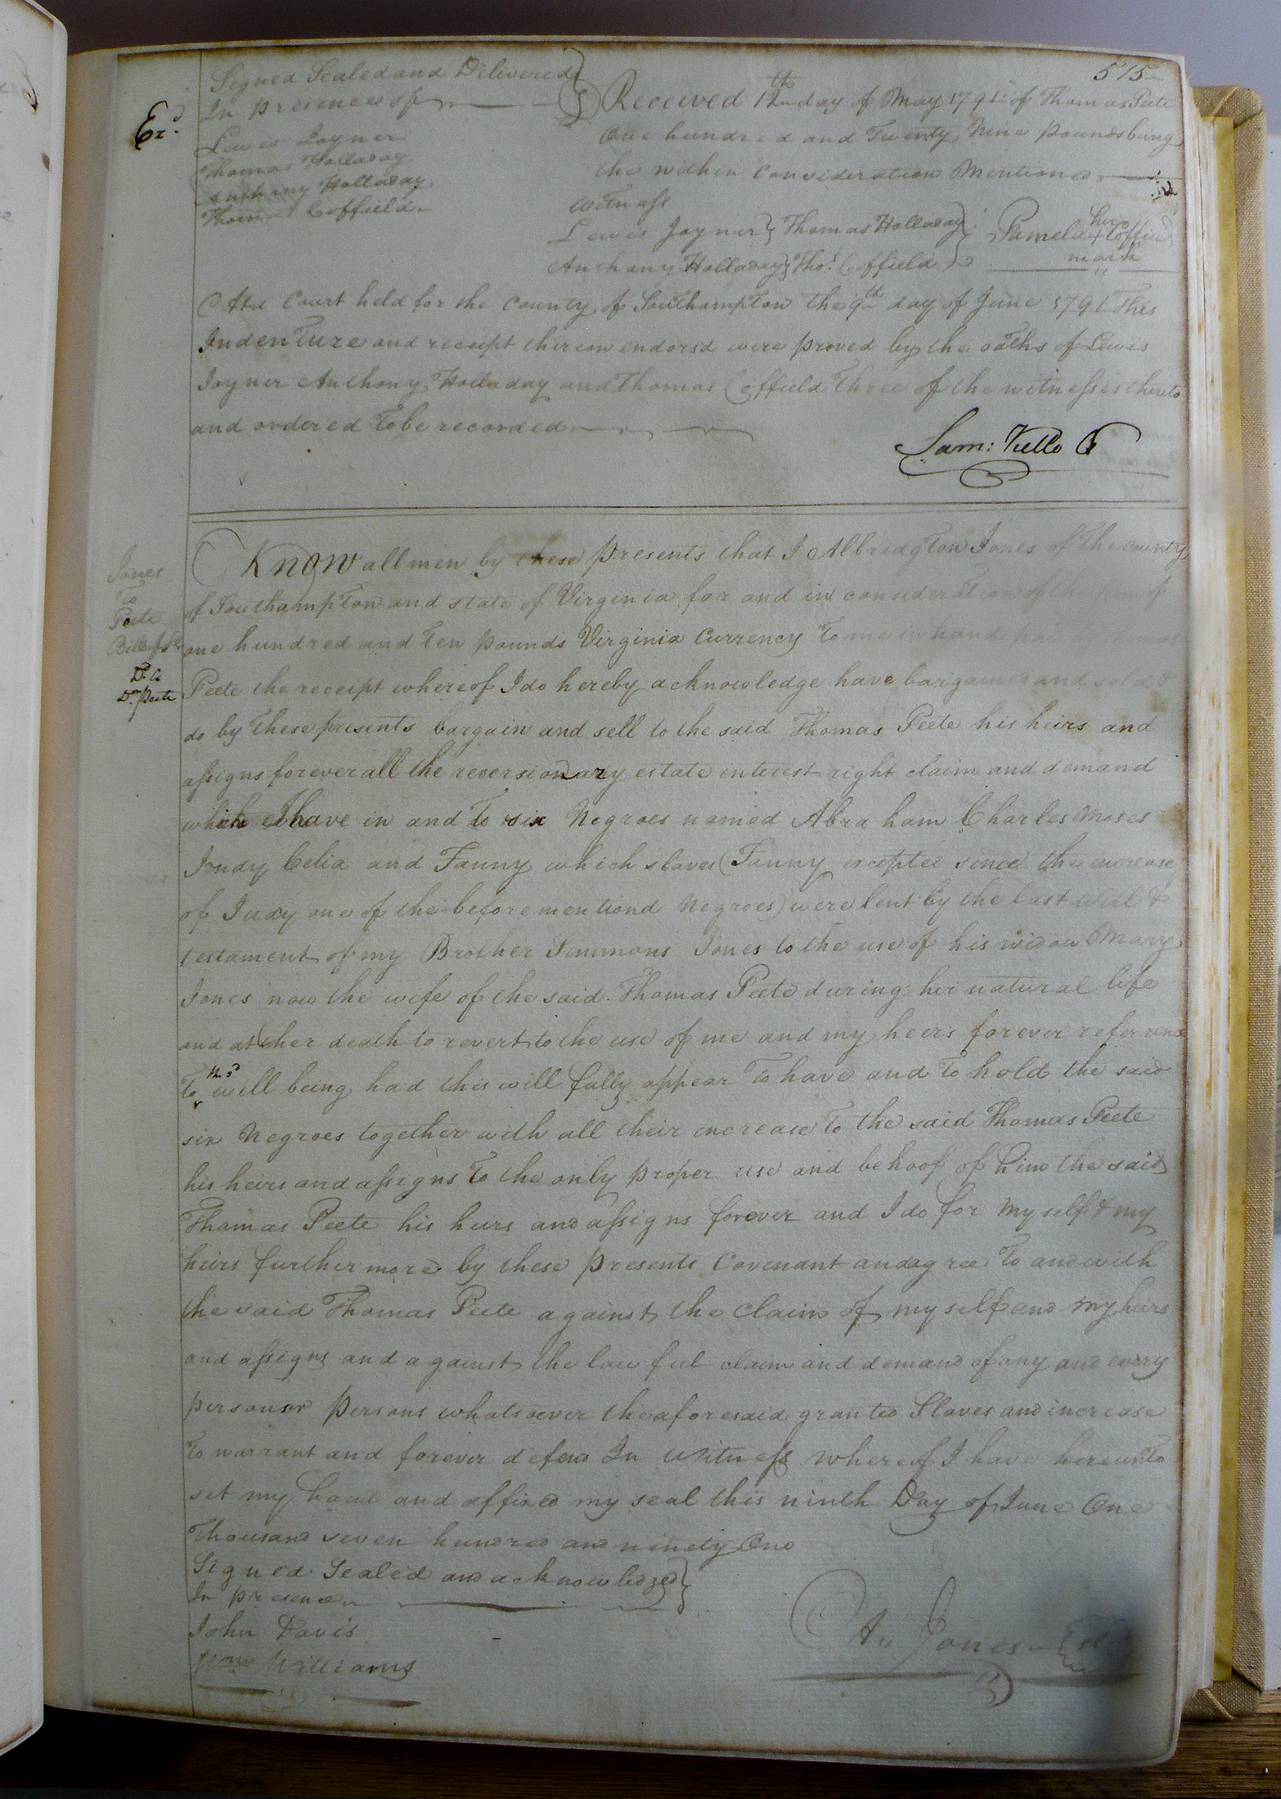 515
Signed Sealed and Delivered
In presence of
Lewis Joyner
Thomas Holladay
Anthony Holladay
Thomas Coffield
Ex.d
Received 12th day of May 1791 of Thomas Peete
One hundred and Twenty Nine pounds being
the within Consideration Mentioned
Witness
Lewis Joyner } Thomas Holladay
Anthony Holladay } Thos. Coffield
her
Pamela + Coffield
mark
At a Court held for the County of Southampton the 9th day of June 1791 This
Indenture and receipt thereon endorsd were proved by the oaths of Lewis
Joyner Anthony Holladay and Thomas Coffield Three of the witnesses thereto
and ordered to be recorded
Sam: Kello C
Jones
To
Peete
Bill of
Dd.
Dr. Peete
Know all men by these presents that I Albridgton Jones of the county
of Southampton and state of Virginia for and in consideration of the sum of
one hundred and ten pounds Virginia Currency to me in hand
Peete the receipt whereof I do hereby acknowledge have bargained and sold &
do by These presents bargain and sell to the said Thomas Peete his heirs and
assigns forever all the reversionary estate interest right claim and demand
which I have in and to six Negroes named Abraham Charles Moses
Judy Celia and Fanny which slaves (Fanny excepted since the increase
of Judy one of the beforementiond Negroes) were lent by the last will &
testament of my Brother Simmons Jones to the use of his widow Mary
Jones now the wife of the said Thomas Peete during her natural life
and at her death to revert to the use of me and my heirs forever referance
To will being had this will fully appear To have and to hold the said
six Negroes together with all their increase to the said Thomas Peete
his heirs and assigns to the only proper use and behoof of him the said
Thomas Peete his heirs and assigns forever and I do for my self & my
heirs furthermore by these presents Covenant and agree to and with
the said Thomas Peete against the claim of my self and my heirs
and assigns and against the law ful claim and demand of any and every
person or persons whatsoever the aforesaid granted Slaves and increase
to warrant and forever defend In Witness whereof I have hereunto
set my hand and affixed my seal this ninth Day of June One
Thousand seven hundred and ninety One
Signed Sealed and acknowledged
In presence
John Davis
Wm Williams
A. Jones